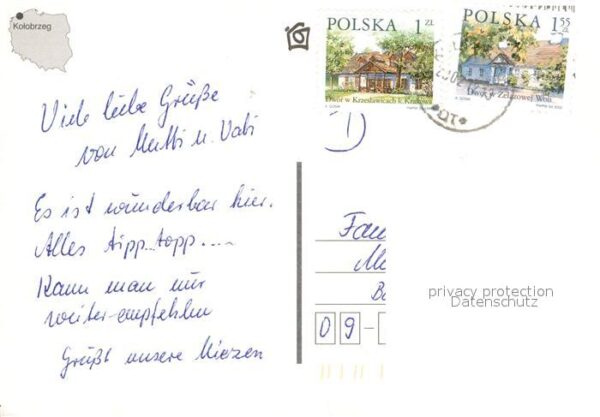 Kołobrzeg
POLSKA 1 ZŁ
Dwór w Krzesławicach k. Krakowa
POLSKA 1.55 ZŁ
Dwór w Żelazowej Woli
Viele liebe Grüße
von Mutti u. Vati
Es ist wunderbar hier.
Alles tipp-topp....
Kann man nur
weiter-empfehlen
Grüßt unsere Miezen
Fam
09-
privacy protection
Datenschutz